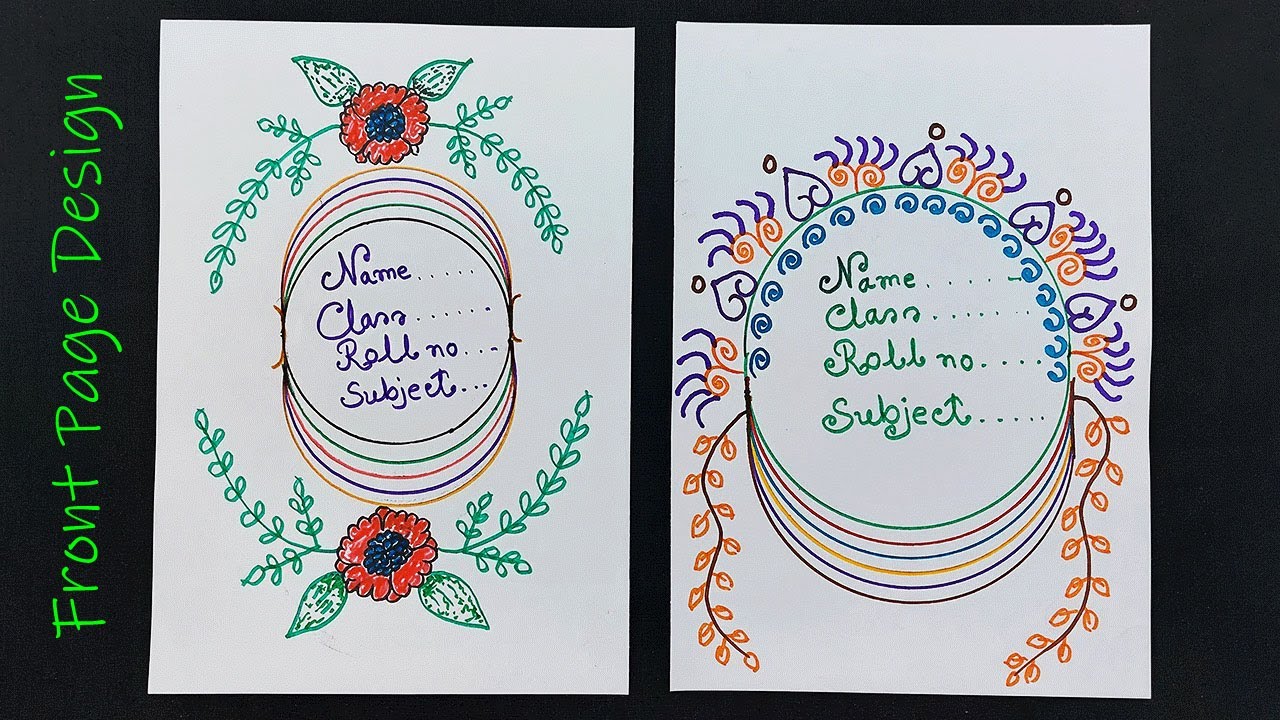 Front Page Design
Name......
Class......
Roll no...
Subject...
Name.....
Class.......
Roll no....
Subject.....